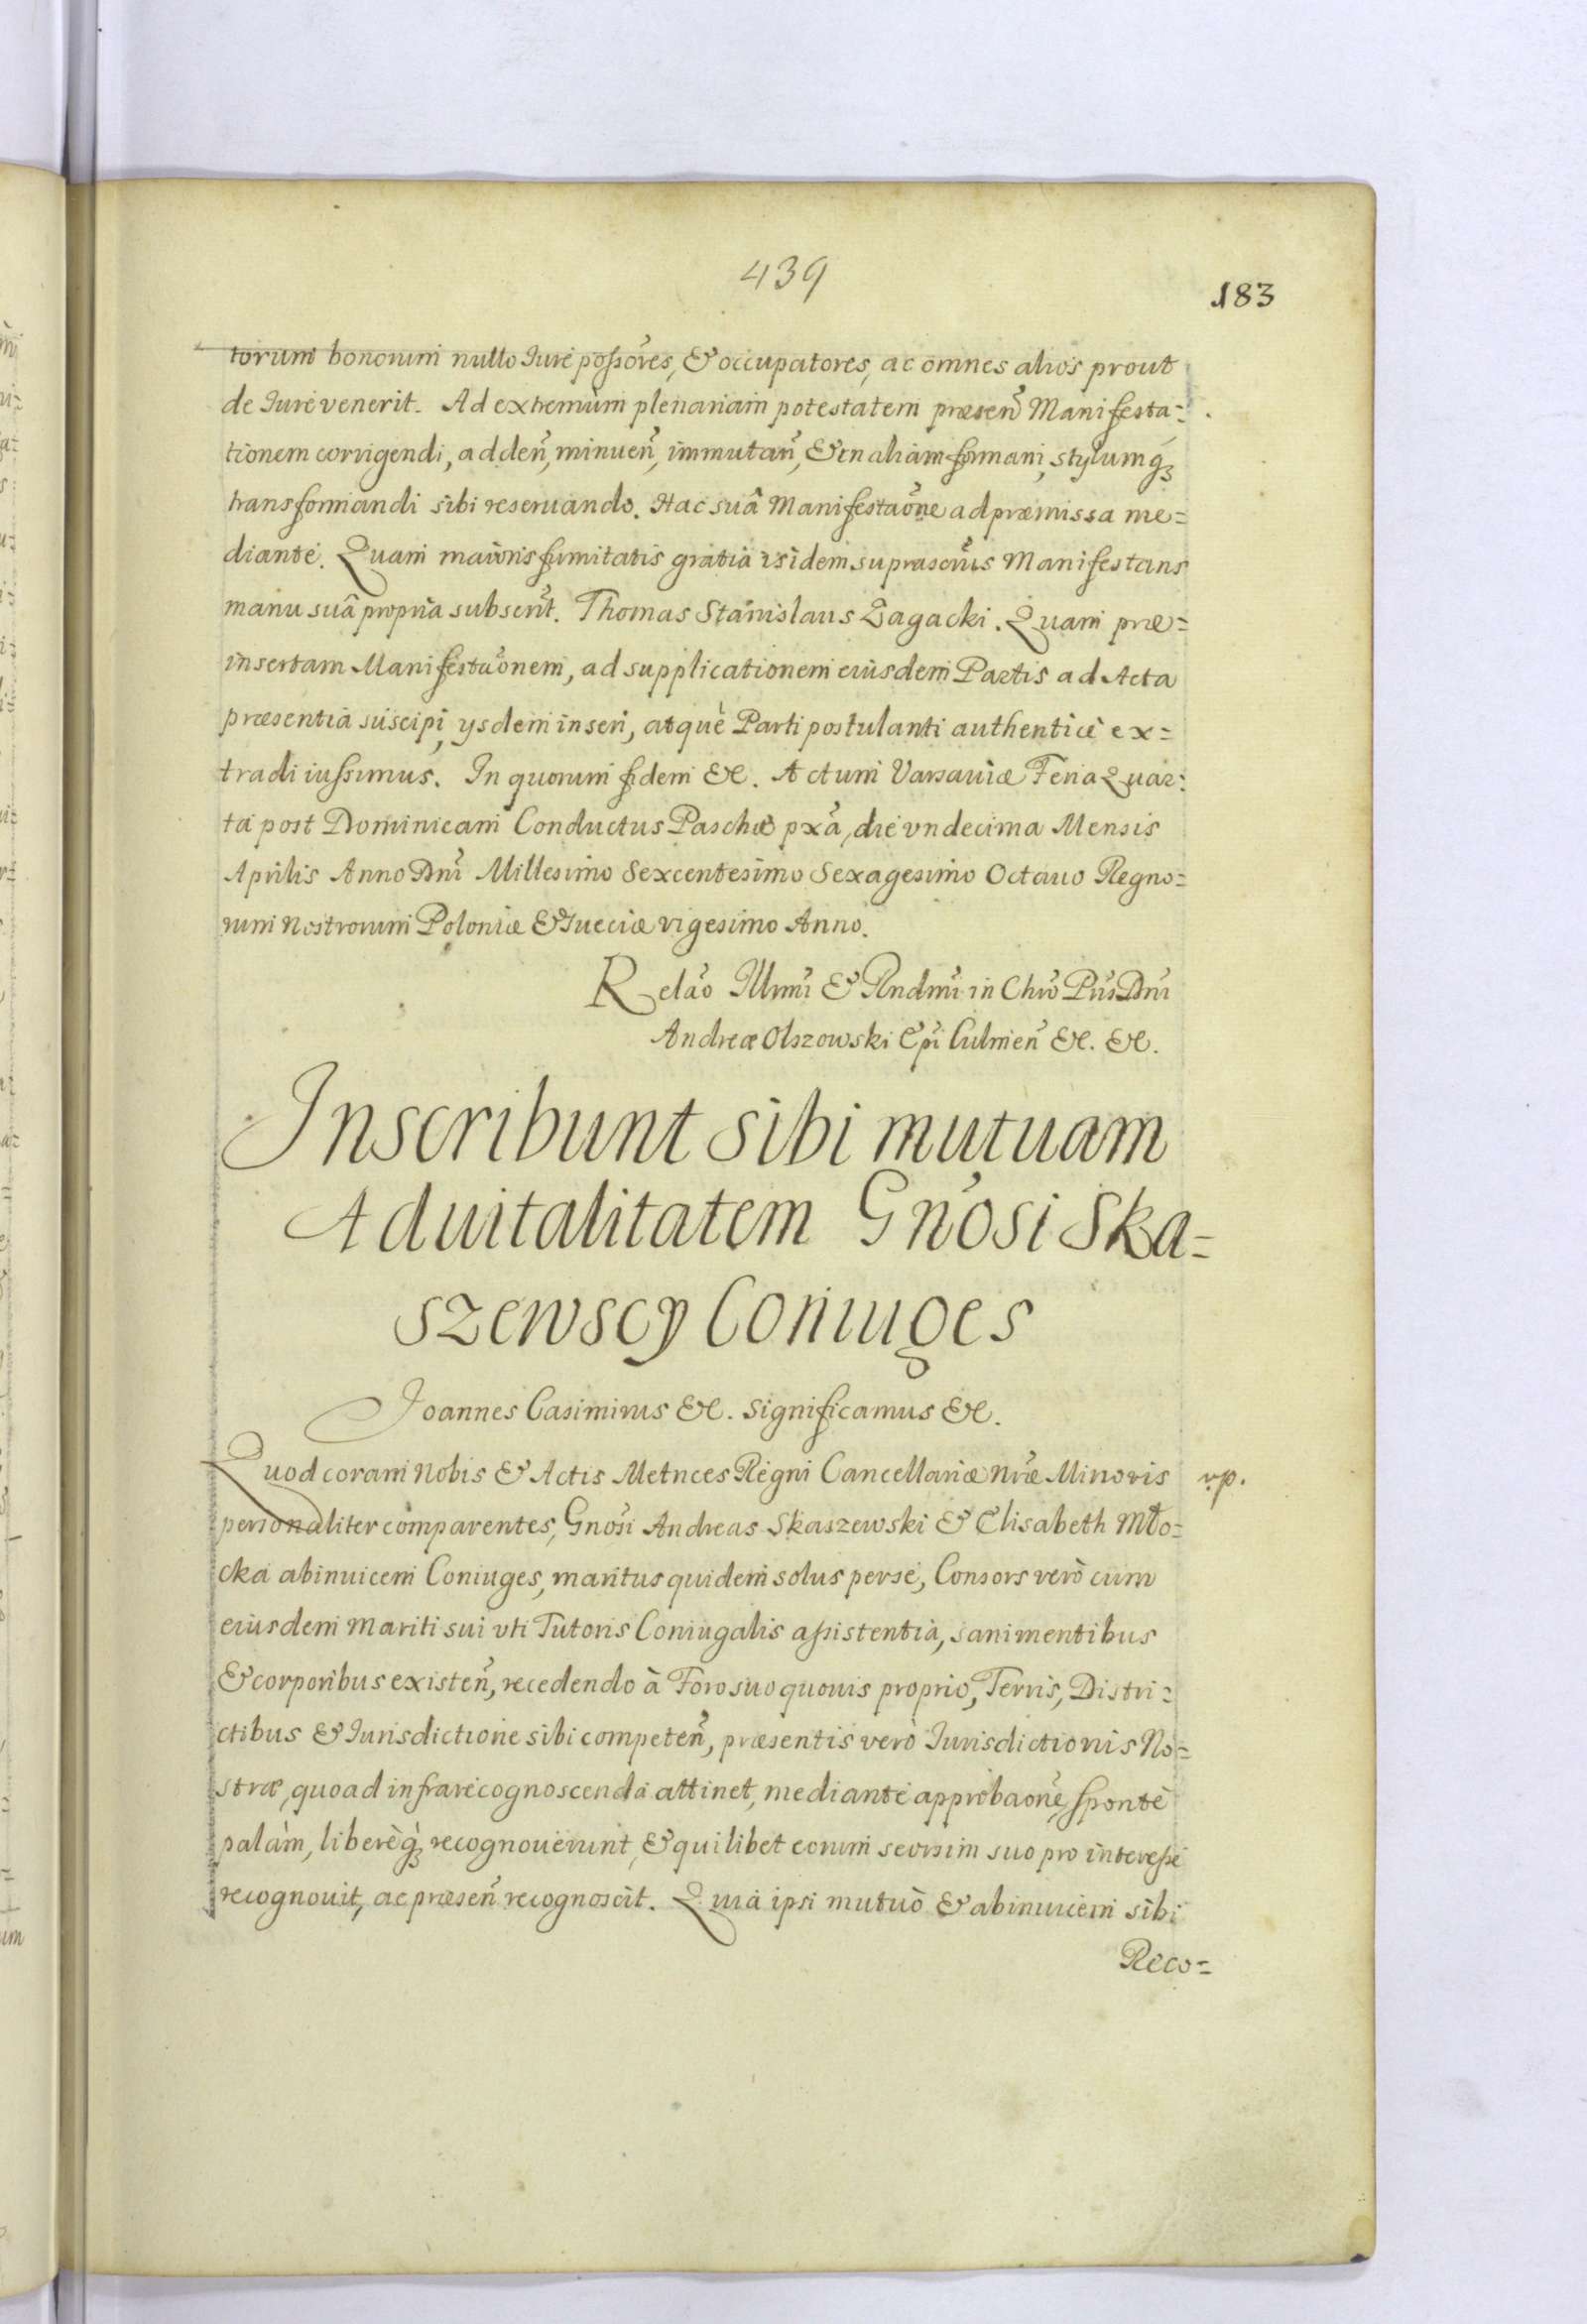 439
183
torum bonorum nullo Iure possores, & occupatores, ac omnes alios prout
de Iure venerit. Ad extremum plenariam potestatem præsen Manifesta=
tionem corrigendi, adden, minuen, immutan, & in aliam formam, stylumq́;
transformandi sibi reseruando. Hac suâ Manifestaone ad præmissa me=
diante. Quam maioris firmitatis gratia isidem suprascrus Manifestans
manu suâ propria subscrit. Thomas Stanislaus Zagacki. Quam præ=
insertam Manifestaonem, ad supplicationem eiusdem Partis ad Acta
præsentia suscipi, ysdem inseri, atquè Parti postulanti authenticè ex=
tradi iussimus. In quorum fidem &c. Actum Varsauiæ Feria Quar=
ta post Dominicam Conductus Paschæ pxa, die vndecima Mensis
Aprilis Anno Dni Millesimo Sexcentesimo Sexagesimo Octauo Regno=
rum Nostrorum Poloniæ & Sueciæ vigesimo Anno.
Relao Illmi & Rndmi in Chro Pris Dni
Andreæ Olszowski Epi Culmen &c. &c.
Inscribunt sibi mutuam
Aduitalitatem Gnosi Ska=
szewscy Coniuges
Joannes Casimirus &c. Significamus &c.
Quod coram Nobis & Actis Metrices Regni Cancellariæ Nræ Minoris
rp.
personaliter comparentes, Gnosi Andreas Skaszewski & Elisabeth Mło=
cka abinuicem Coniuges, maritus quidem solus per se, Consors verò cum
eiusdem mariti sui vti Tutoris Coniugalis assistentia, sani mentibus
& corporibus existen, recedendo à Foro suo quouis proprio, Terris, Distri=
ctibus & Iurisdictione sibi competen, præsentis verò Iurisdictionis No=
stræ, quoad infra recognoscenda attinet, mediante approbaone, spontè
palàm, liberèq́; recognouerunt, & quilibet eorum seorsim suo pro interesse
recognouit, ac præsen recognoscit. Quia ipsi mutuò & abinuicem sibi
Reco=